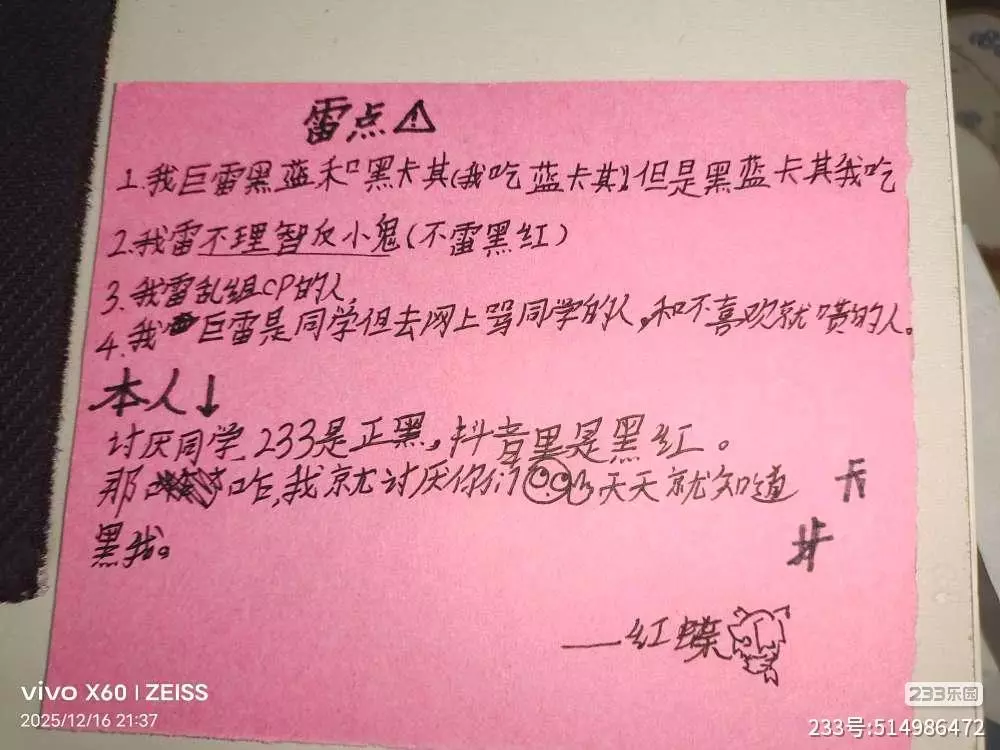 雷点⚠
1.我巨雷黑蓝和黑卡其(我吃蓝卡其)但是黑蓝卡其我吃
2.我雷不理智反小鬼(不雷黑红)
3.我雷乱组CP的人
4.我巨雷是同学但去网上骂同学的人,和不喜欢就喷的人。
本人↓
讨厌同学233是正黑,抖音黑是黑红。
那咋,我就讨厌你们天天就知道
黑我。
卡
——红蝶
vivo X60 | ZEISS
2025/12/16 21:37
233乐园
233号:514986472